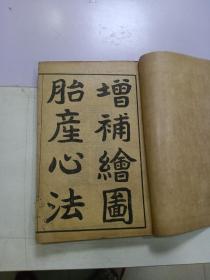 增補繪圖
胎產心法